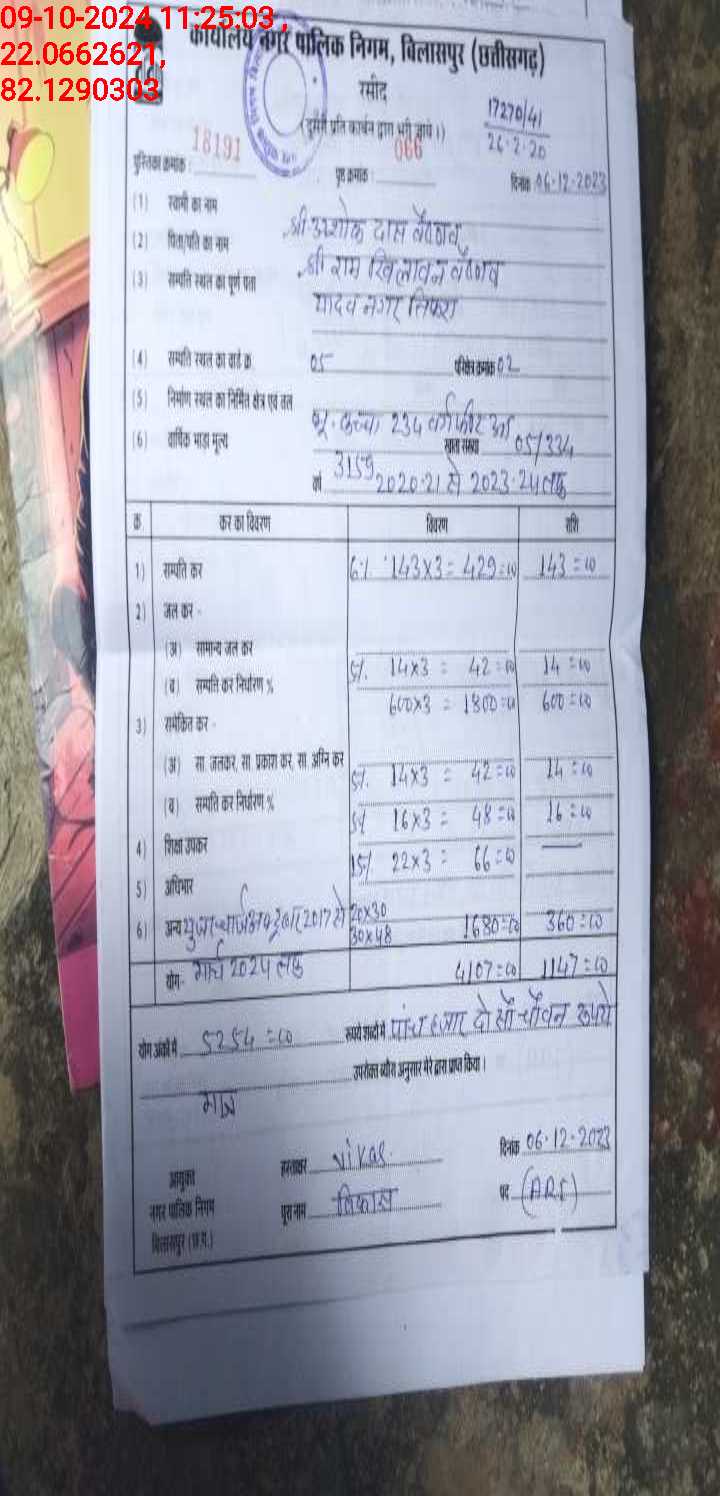 09-10-2024 11:25:03 ,
22.0662621,
82.1290303
कार्यालय नगर पालिक निगम, बिलासपुर (छत्तीसगढ़)
रसीद
(दूसरी प्रति कार्बन द्वारा भरी जावे।)
17270/41
26.2.20
पुस्तिका क्रमांक : 18191 पृष्ठ क्रमांक : 066 दिनांक 06-12-2023
(1) स्वामी का नाम श्री अशोक दास वैष्णव
(2) पिता/पति का नाम श्री राम खिलावन वैष्णव
(3) सम्पत्ति स्थल का पूर्ण पता यादव नगर तिफरा
(4) सम्पत्ति स्थल का वार्ड क्र. 05 परिक्षेत्र क्रमांक 02
(5) निर्माण स्थल का निर्मित क्षेत्र एवं तल भू. कच्चा 234 वर्गफीट
(6) वार्षिक भाड़ा मूल्य 3159 खाता संख्या 05/334
वर्ष 2020-21 से 2023-24 तक
क्र. कर का विवरण विवरण राशि
1) सम्पत्ति कर 6% 143x3 = 429=00 143=00
2) जल कर -
(अ) सामान्य जल कर 14x3 = 42=00 14=00
(ब) सम्पत्ति कर निर्धारण % 600x3 = 1800=00 600=00
3) समेकित कर -
(अ) सा. जलकर, सा. प्रकाश कर, सा. अग्नि कर 14x3 = 42=00 14=00
(ब) सम्पत्ति कर निर्धारण % 16x3 = 48=00 16=00
4) शिक्षा उपकर 15% 22x3 = 66=00 —
5) अधिभार
6) अन्य यूजर चार्ज अक्टूबर 2017 से 20x30 30x48 1680=00 360=00
मार्च 2024 तक
योग- 4107=00 1147=00
योग अंकों में 5254=00 रूपये शब्दों में पांच हजार दो सौ चौवन रूपये
मात्र उपरोक्त ब्यौरा अनुसार मेरे द्वारा प्राप्त किया।
आयुक्त हस्ताक्षर Vikas. दिनांक 06-12-2023
नगर पालिक निगम पूरा नाम विकास पद (ARI)
बिलासपुर (छ.ग.)